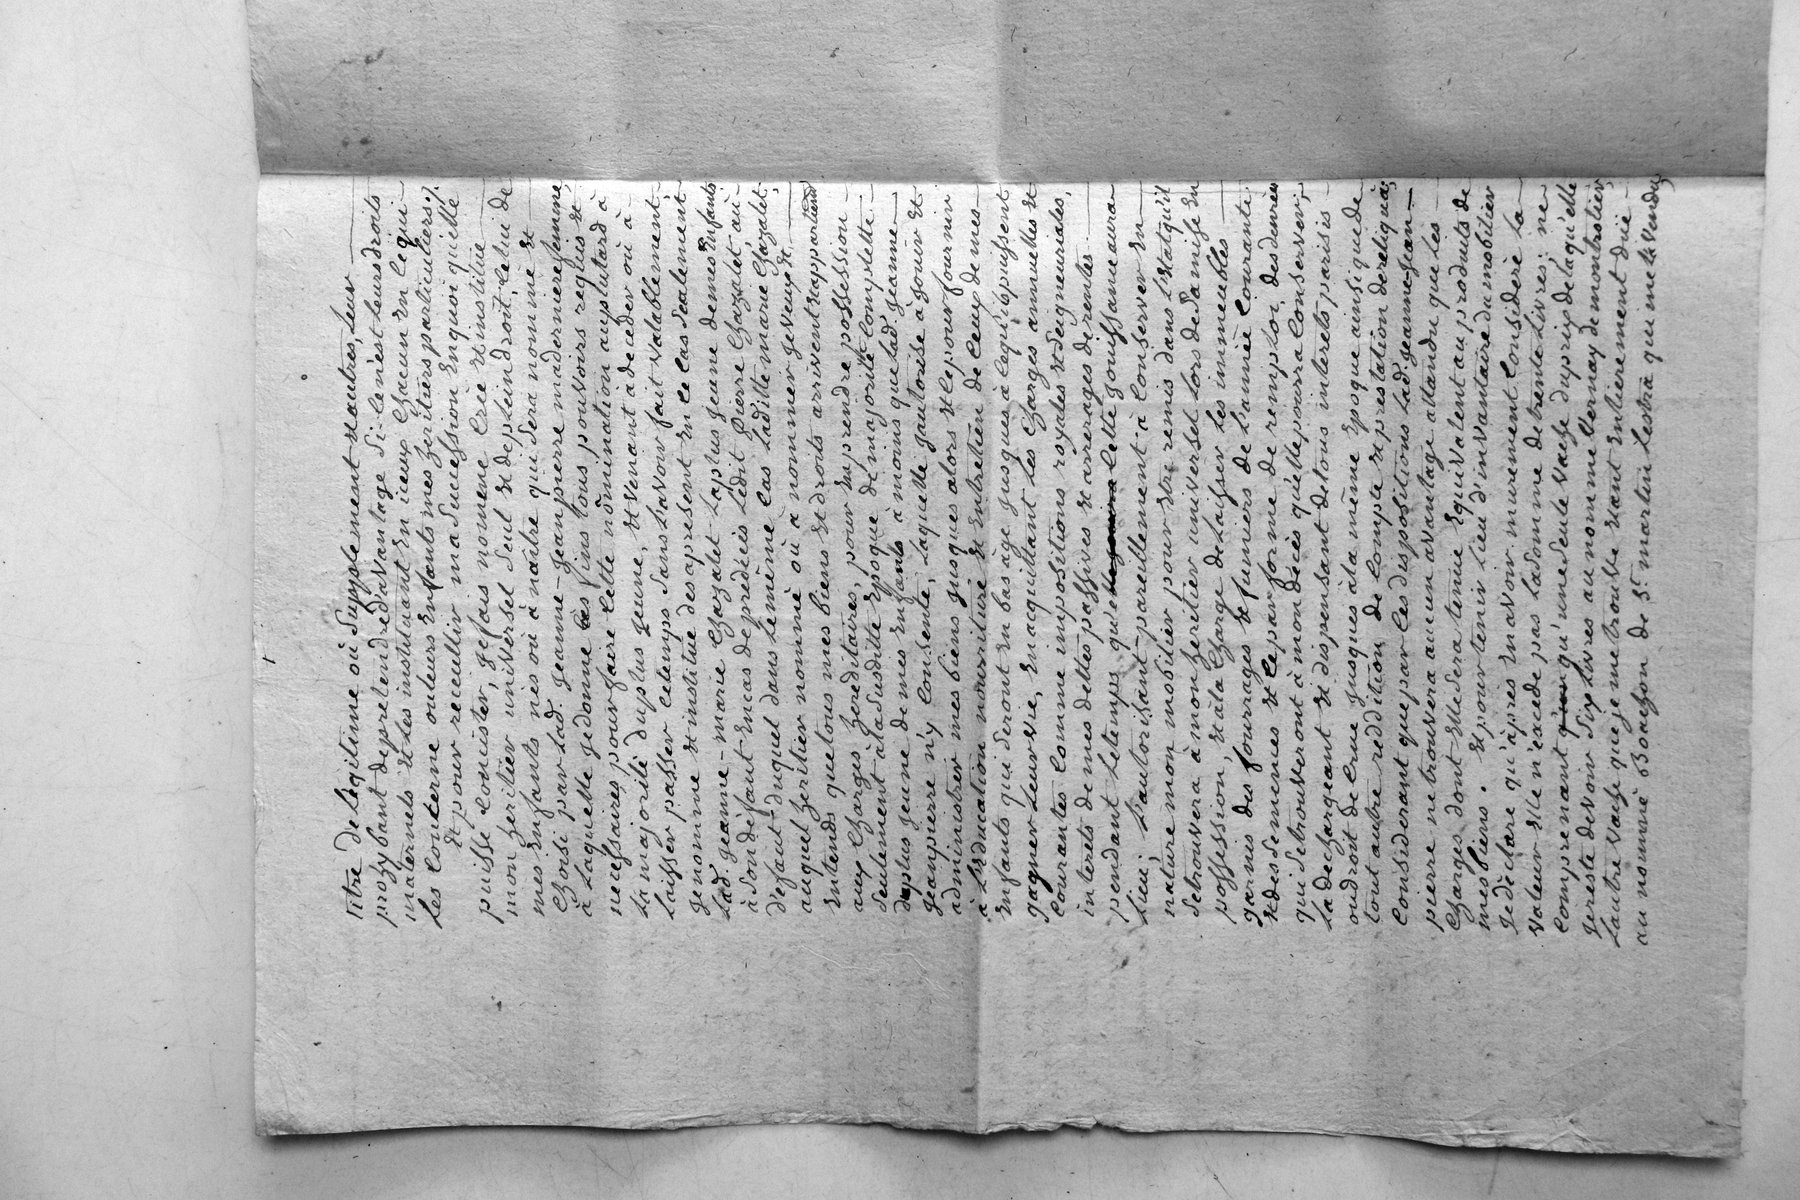 titre de Légitime où Supplement et autres, Leur
prohybant de prétendre davantage Si ce n'est leurs droits
maternels et les instituant en iceux chacun en ce qui
les Conserne mes heritiers particuliers.
Et pour recueillir ma Succession en quoi qu'elle
puisse Concister, je fais nomme Crée et institue
mon heritier universel Seul et de plein droit, Celui de
mes enfants nés où à naître qui Sera nommé et
Choisi par Lad. jeanne-jeanpierre maderniere femme,
à Laquelle je donne à ces fins tous pouvoirs requis et
necessaires, pour faire Cette nomination au plutard à
La majorité du plus jeune, et venant à deceder où à
Laisser passer ce temps Sans L'avoir fait valablement
je nomme et institue des apresent en ce cas Sealement
Lad. jeanne-marie Chazalet La plus jeune de mes enfants
à Son défaut en cas de predécés Ledit Pierre Chazalet au
défaut duquel dans Le même cas Laditte marie Chazalet,
auquel heritier nommé où à nommer je veux et
entends que tous mes biens et droits arrivent et appartiend
aux Charges hereditaires, pour en prendre possession
Seulement à la Susditte epoque de majorité Complette
du plus jeune de mes enfants à moins que Lad. jeanne
jeanpierre n'y Consente, Laquelle j'autorise à jouir et
administrer mes biens jusques alors et Ce pour fournir
à L'education nourriture et entretien de Ceux de mes
enfants qui Seront en bas âge jusques à ce qu'ils puissent
gagner Leur vie, en aquittant Les Charges annuelles et
Courantes Comme impositions royales et Seigneuriales,
interets de mes dettes passives et arrerages de rentes
pendant Le temps qu'elle Cette jouissance aura
Lieu. L'autorisant pareillement à Conserver en
nature mon mobilier pour etre remis dans L'etat qu'il
Se trouvera à mon heritier universel Lors de Sa mise en
possession, et à La Charge de Laisser Les immeubles
garnis des fourrages et fumiers de L'année Courante
et des Semences et Ce par forme de remploi, des denrées
qui Se trouveront à mon décès qu'elle pourra Conserver;
La dechargeant et dispensant de tous interets parisis
ou droit de Crue jusques à la même epoque ainsi que de
tout autre reddition de Compte et prestation de reliqua;
Considerant que par Ces dispositions Lad. jeanne jean-
pierre ne trouvera aucun avantage attandu que Les
Charges dont elle Sera tenue equivalent au produits de
mes biens. et pour tenir Lieu d'inventaire du mobilier
je déclare qu'àprès en avoir murement Consideré La
valeur elle n'excede pas La Somme de trente Livres; ne
Comprenant qu'une Seule vache du prix de laquelle
je reste devoir Six Livres au nommé Vernay de montrotier,
L'autre vache que je me trouve etant entierement due
au nommé Bonchon de St martin Lestra qui me l'a vendue